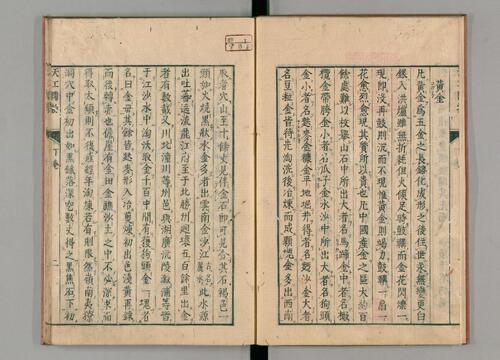 黃金
凡黃金為五金之長鎔化成形之後住世永無變更白
銀入洪爐雖無折耗但火候足時鼓鞴而金花閃爍一
現即沒再鼓則沉而不現惟黃金則竭力鼓鞴一扇一
花愈烈愈現其質所以貴也凡中國產金之區大約百
餘處難以枚舉山石中所出大者名馬蹄金中者名橄
欖金帶胯金小者名瓜子金水沙中所出大者名狗頭
金小者名麩麥金糠金平地掘井得者名麪沙金大者
名豆粒金皆待先淘洗後冶煉而成顆塊金多出西南
取者穴山至十餘丈見伴金石即可見金其石褐色一
頭如火燒黑狀水金多者出雲南金沙江古名麗水此水源
出吐蕃遶流麗江府至于北勝州迴環五百餘里出金
者有數截又川北潼川等州邑與湖廣沅陵漵浦等皆
于江沙水中淘沃取金千百中間有獲狗頭金一塊者
名曰金母其餘皆麩麥形入冶煎煉初出色淺黃再鍊
而後轉赤也儋崖有金田金雜沙土之中不必深求而
得取太頻則不復產經年淘煉若有則限然嶺南夷獠
洞穴中金初出如黑鐵落深挖數丈得之黑焦石下初
天工開物
下卷
二